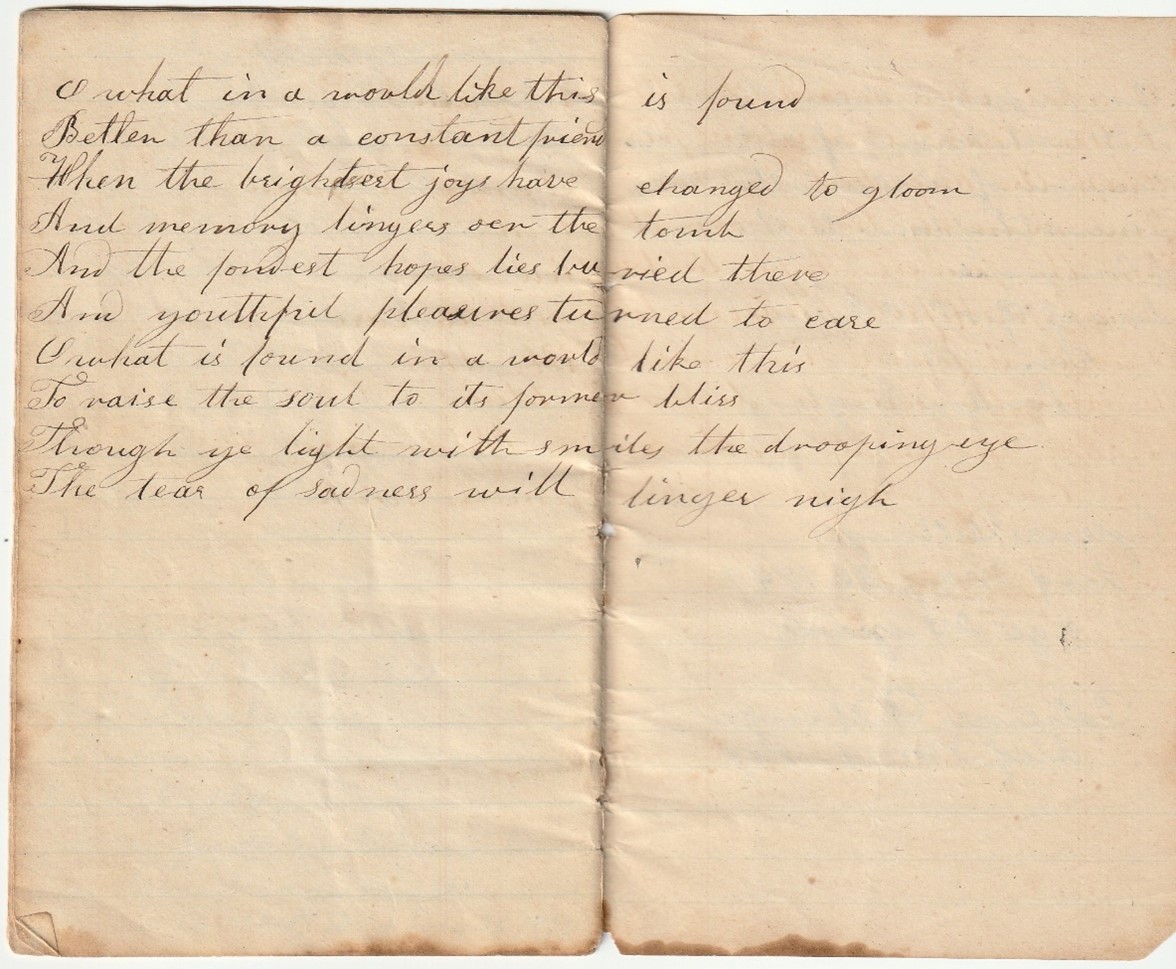 O what in a world like this is found
Better than a constant friend
When the brightsest joys have changed to gloom
And memory lingers oer the tomb
And the fondest hopes lies buried there
And youthful pleasures turned to care
O what is found in a world like this
To raise the soul to its former bliss
Though ye light with smiles the drooping eye
The tear of sadness will linger nigh